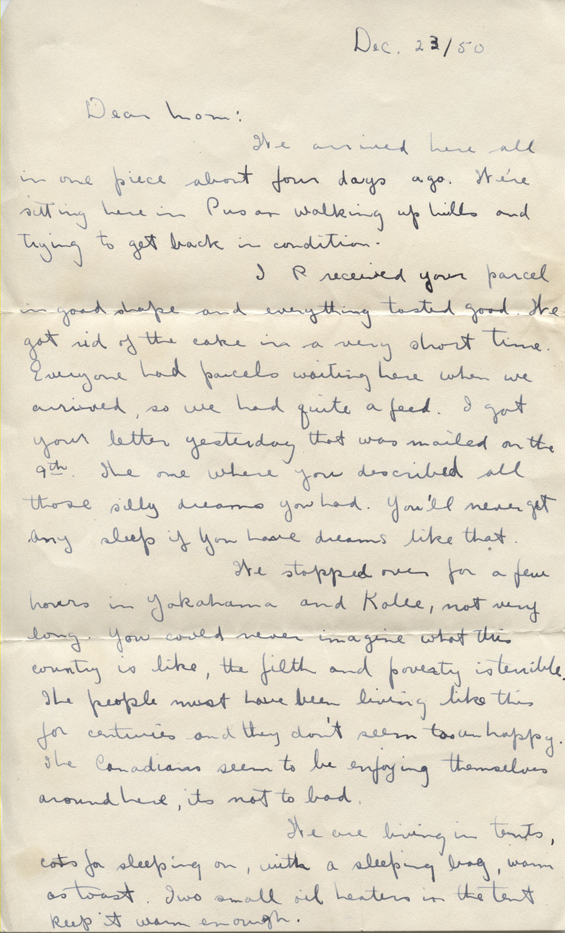 Dec. 23/50
Dear Mom:
We arrived here all
in one piece about four days ago. We're
sitting here in Pusan walking up hills and
trying to get back in condition.
I R received your parcel
in good shape and everything tasted good. We
got rid of the cake in a very short time.
Everyone had parcels waiting here when we
arrived, so we had quite a feed. I got
your letter yesterday that was mailed on the
9th. The one where you described all
those silly dreams you had. You'll never get
any sleep if you have dreams like that.
We stopped over for a few
hours in Yokahama and Kobe, not very
long. You could never imagine what this
country is like, the filth and poverty is terrible.
The people must have been living like this
for centuries and they don't seem too unhappy.
The Canadians seem to be enjoying themselves
around here, its not to bad.
We are living in tents,
cots for sleeping on, with a sleeping bag, warm
as toast. Two small oil heaters in the tent
keep it warm enough.